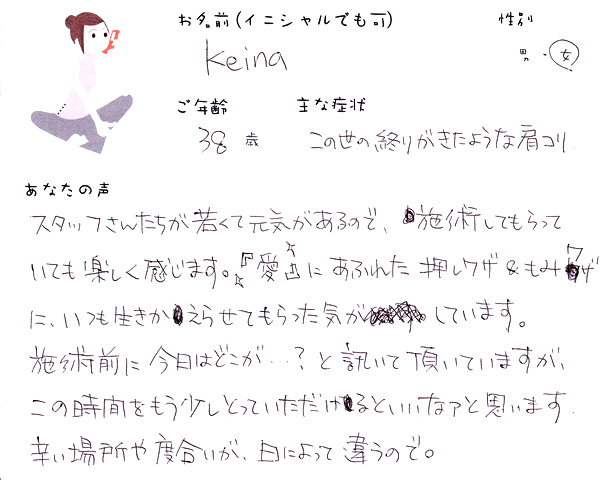 お名前(イニシャルでも可)
性別
Keina
男・女
ご年齢
主な症状
38 歳
この世の終りがきたような肩コリ
あなたの声
スタッフさんたちが若くて元気があるので、施術してもらって
いても楽しく感じます。♪愛☆にあふれた押しワザ&もみワザ
に、いつも生きかえらせてもらった気がしています。
施術前に今日はどこが…?と訊いて頂いていますが、
この時間をもう少しとっていただけるといいなァと思います.
辛い場所や度合いが、日によって違うので。